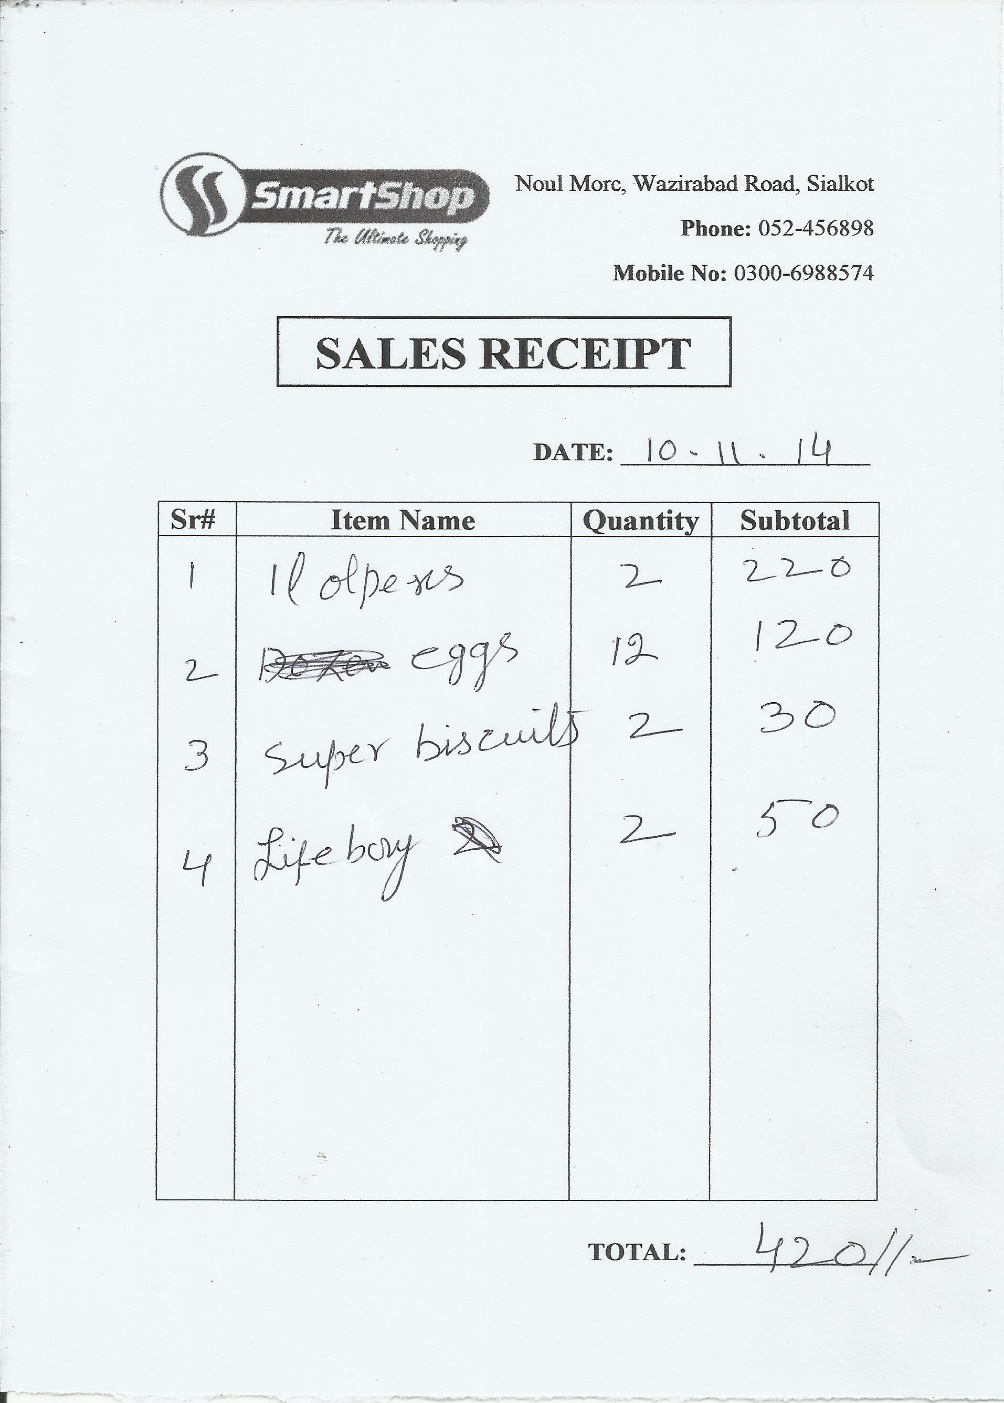 SmartShop
The Ultimate Shopping
Noul More, Wazirabad Road, Sialkot
Phone: 052-456898
Mobile No: 0300-6988574
SALES RECEIPT
DATE: 10-11.14
Sr# Item Name Quantity Subtotal
1 1l olpers 2 220
2 eggs 12 120
3 Super biscuits 2 30
4 Lifeboy 2 50
TOTAL: 420//-